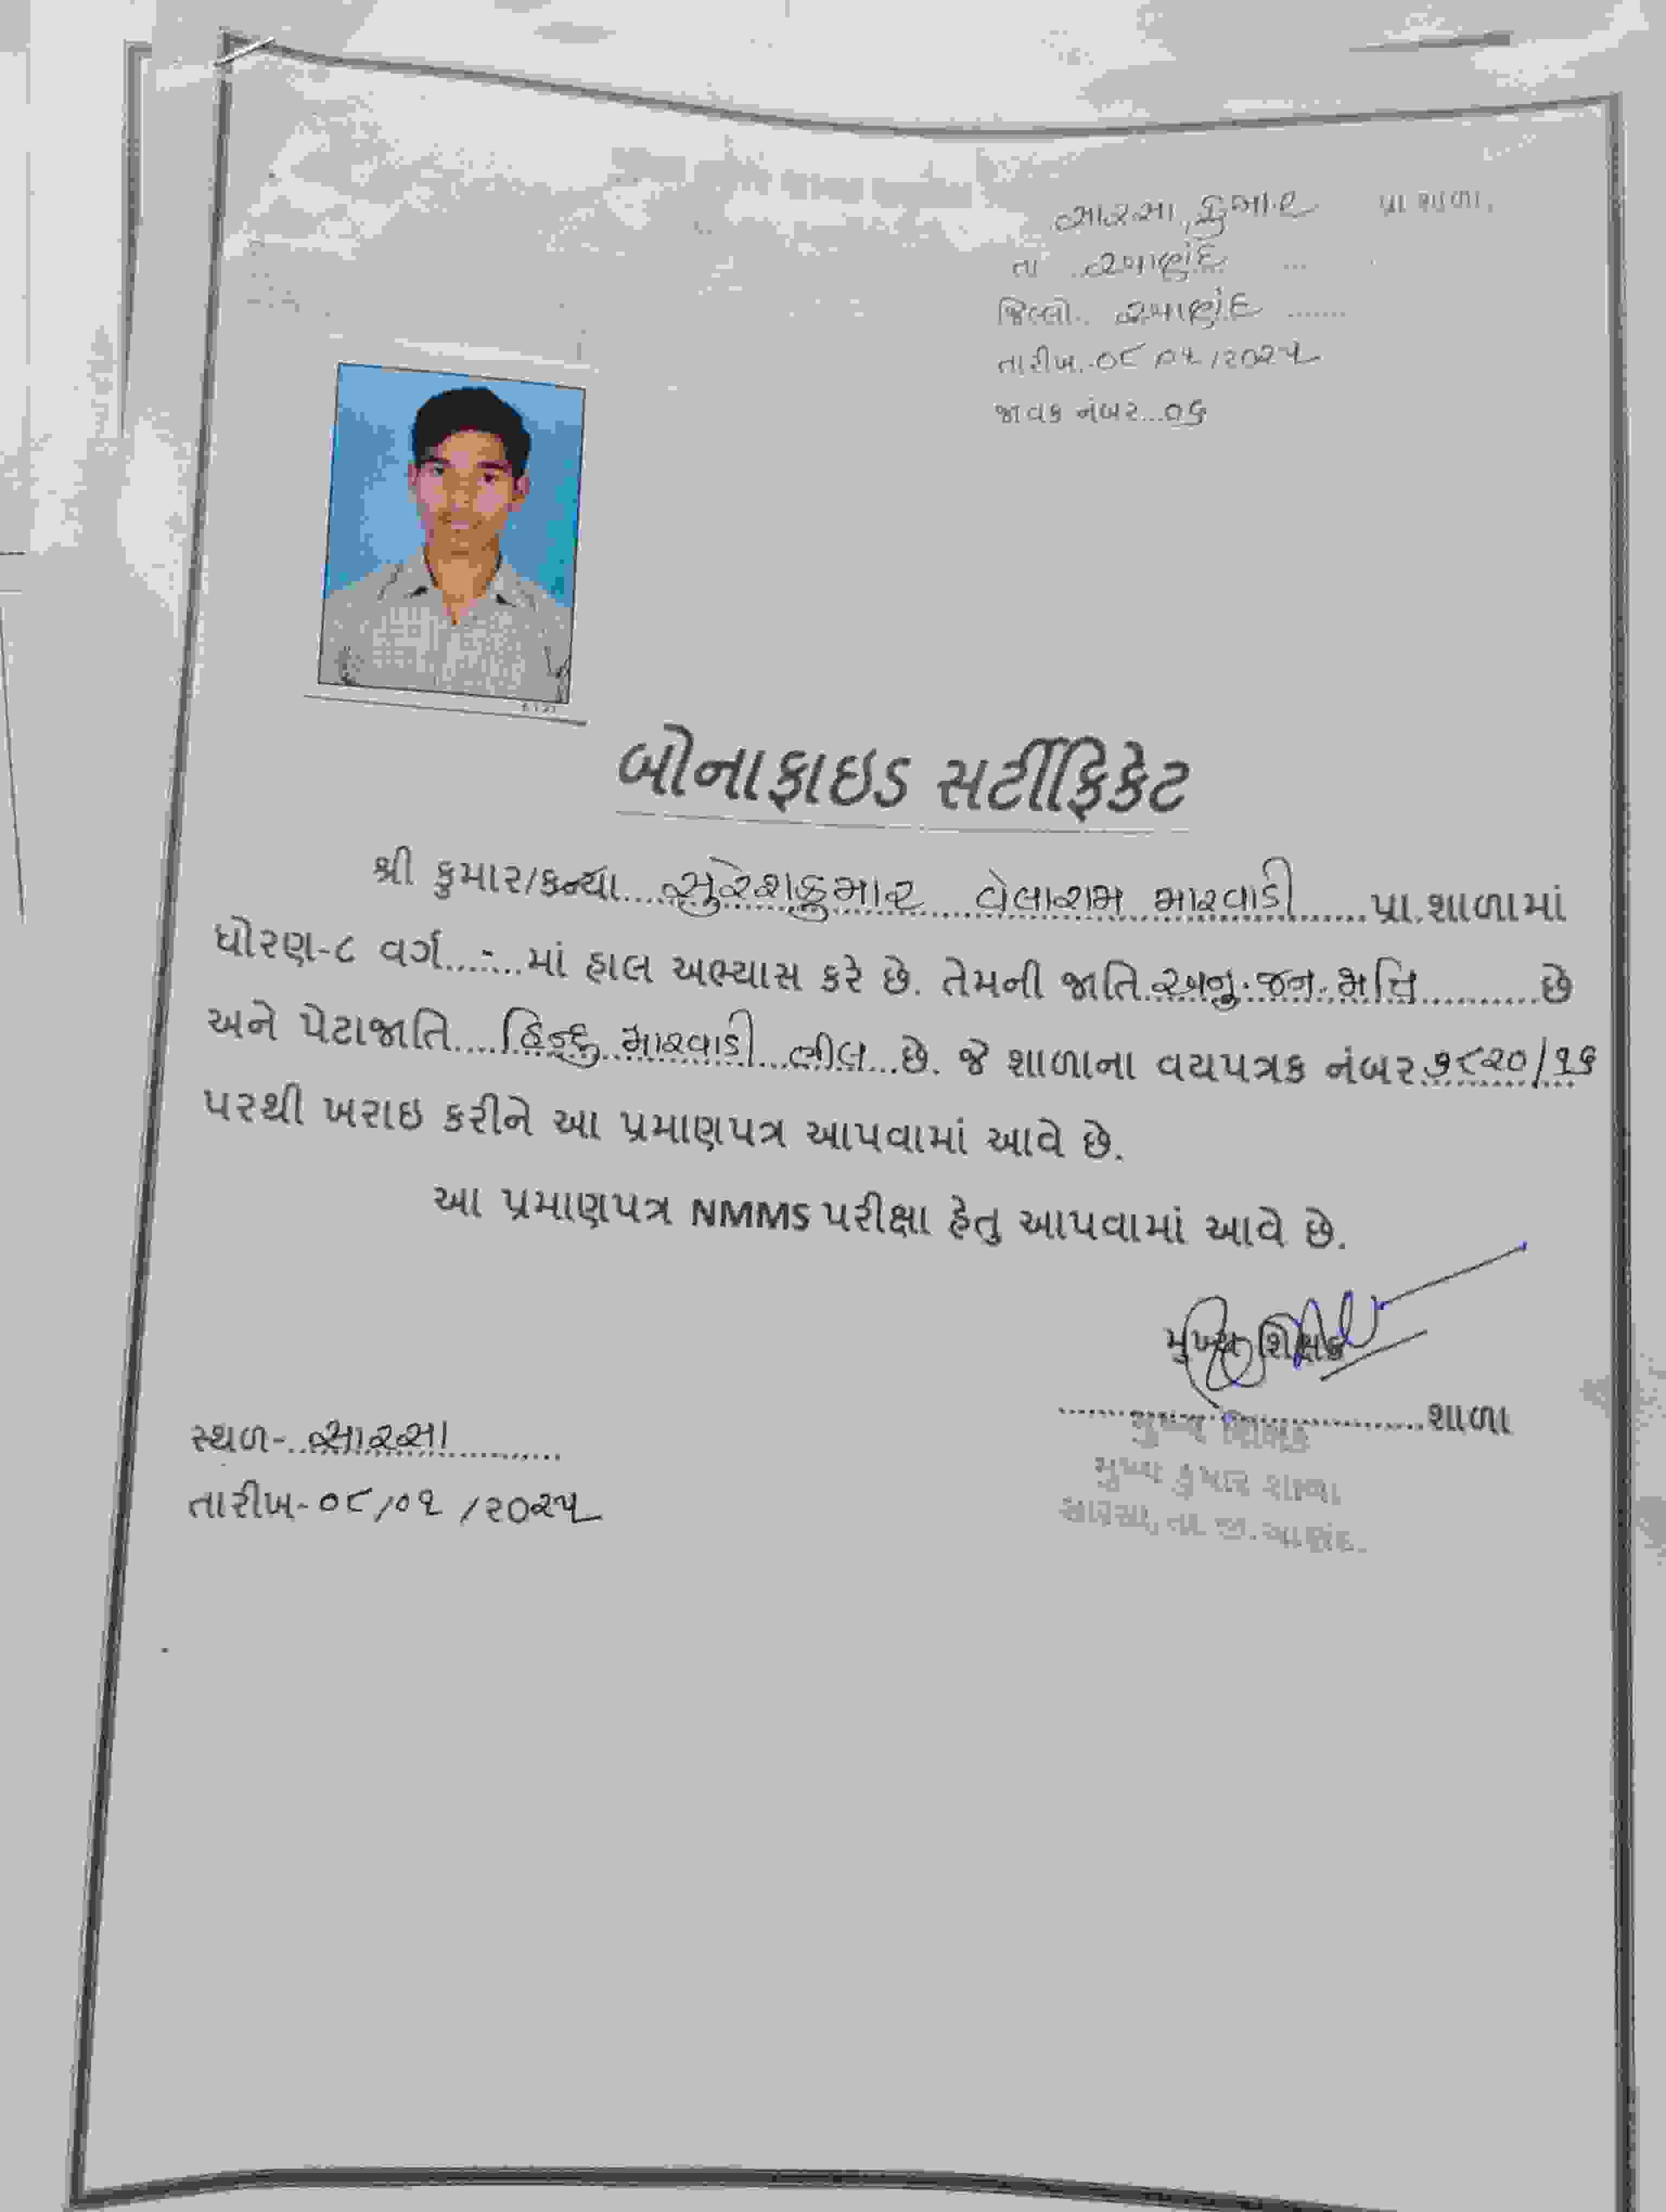 સારસા કુમાર પ્રા શાળા.
તા આણંદ ...
જિલ્લો.. આણંદ .......
તારીખ..૦૮ /૦૧/૨૦૨૫
જાવક નંબર...૦૬
બોનાફાઇડ સર્ટીફિકેટ
શ્રી કુમાર/કન્યા....સુરેશકુમાર વેલારામ મારવાડી......પ્રા.શાળામાં
ધોરણ-૮ વર્ગ...-...માં હાલ અભ્યાસ કરે છે. તેમની જાતિ..અનુ.જન.જાતિ..........છે
અને પેટાજાતિ....હિન્દુ મારવાડી ભીલ...છે. જે શાળાના વયપત્રક નંબર ૭૮૨૦/૧૬
પરથી ખરાઇ કરીને આ પ્રમાણપત્ર આપવામાં આવે છે.
આ પ્રમાણપત્ર NMMS પરીક્ષા હેતુ આપવામાં આવે છે.
મુખ્ય શિક્ષક
.......................................શાળા
મુખ્ય શિક્ષક
મુખ્ય કુમાર શાળા
સારસા, તા.જી.આણંદ.
સ્થળ-..સારસા............
તારીખ-૦૮/૦૧/૨૦૨૫